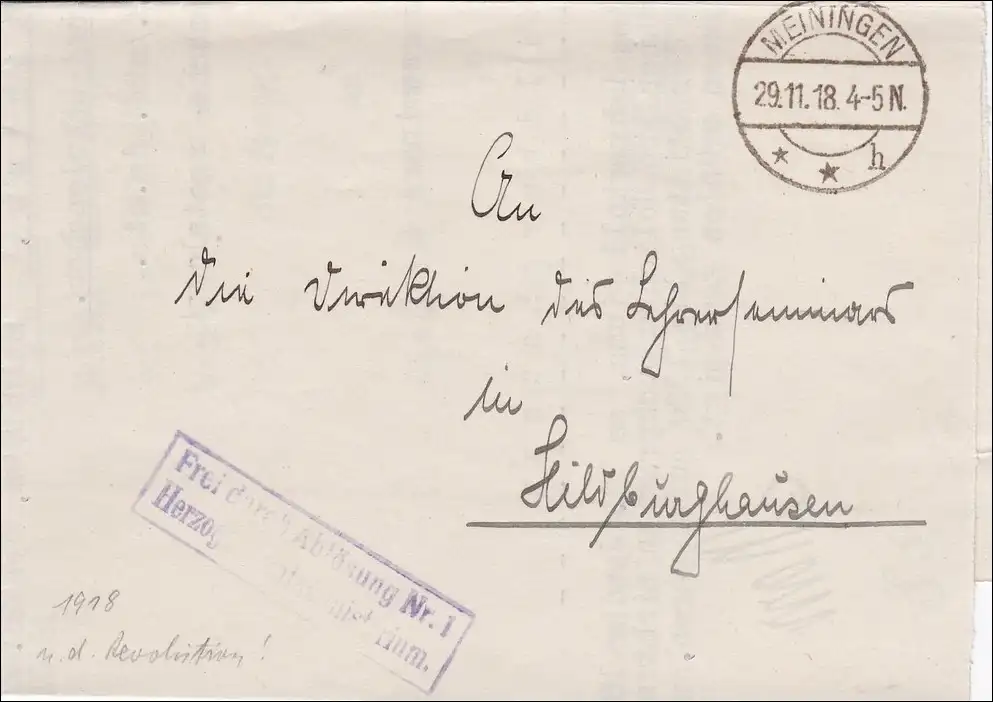 MEININGEN
29.11.18. 4-5 N.
* * h
An
die Direktion des Lehrerseminars
in
Hildburghausen
Frei durch Ablösung Nr. 1
Herzog
1918
n. d. Revolution!